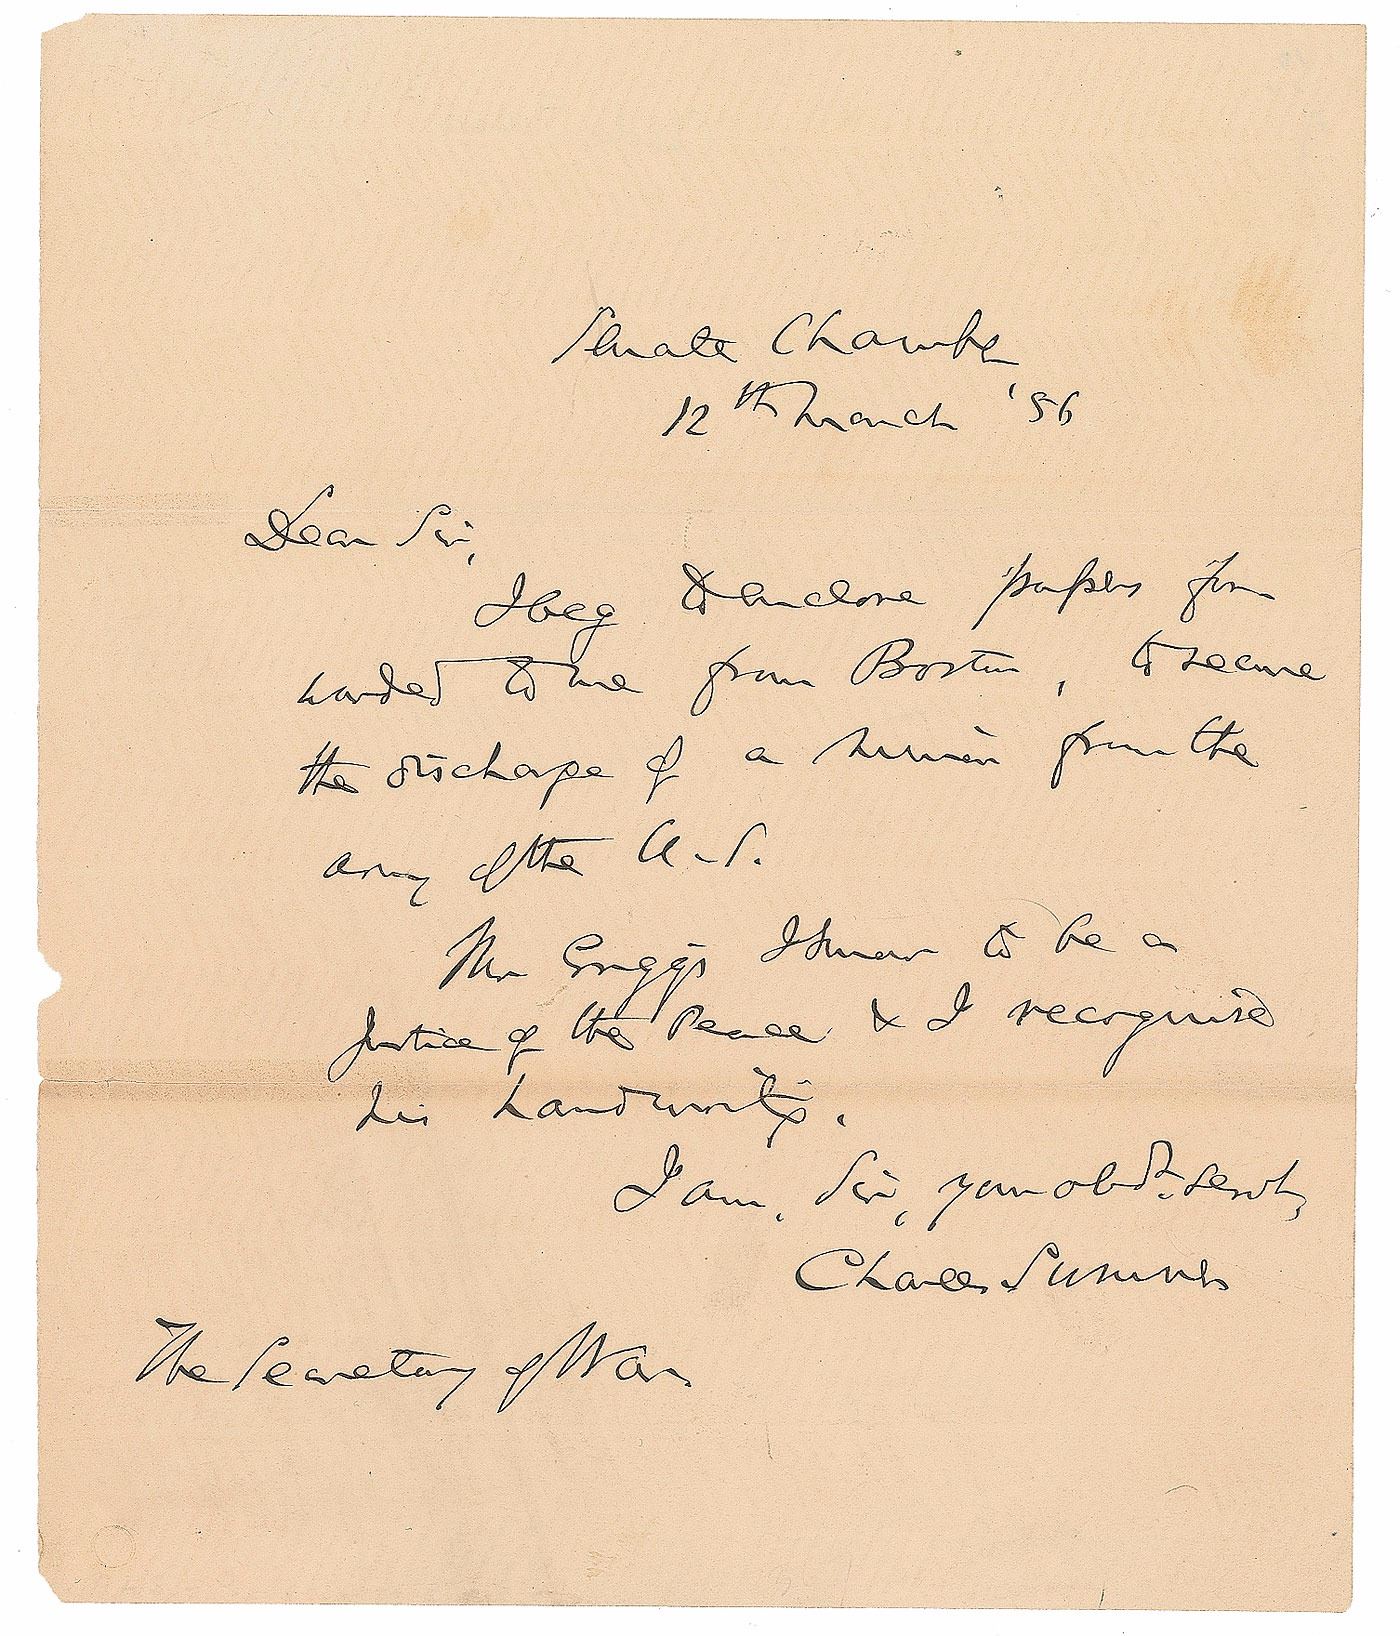 Senate Chamber
12th March '56
Dear Sir,
I beg to enclose papers for
warded to me from Boston, to secure
the discharge of a minor from the
army of the U.S.
Mr Griggs I know to be a
Justice of the Peace & I recognise
his handwriting.
I am, Sir, your obdt. servt,
Charles Sumner
The Secretary of War.